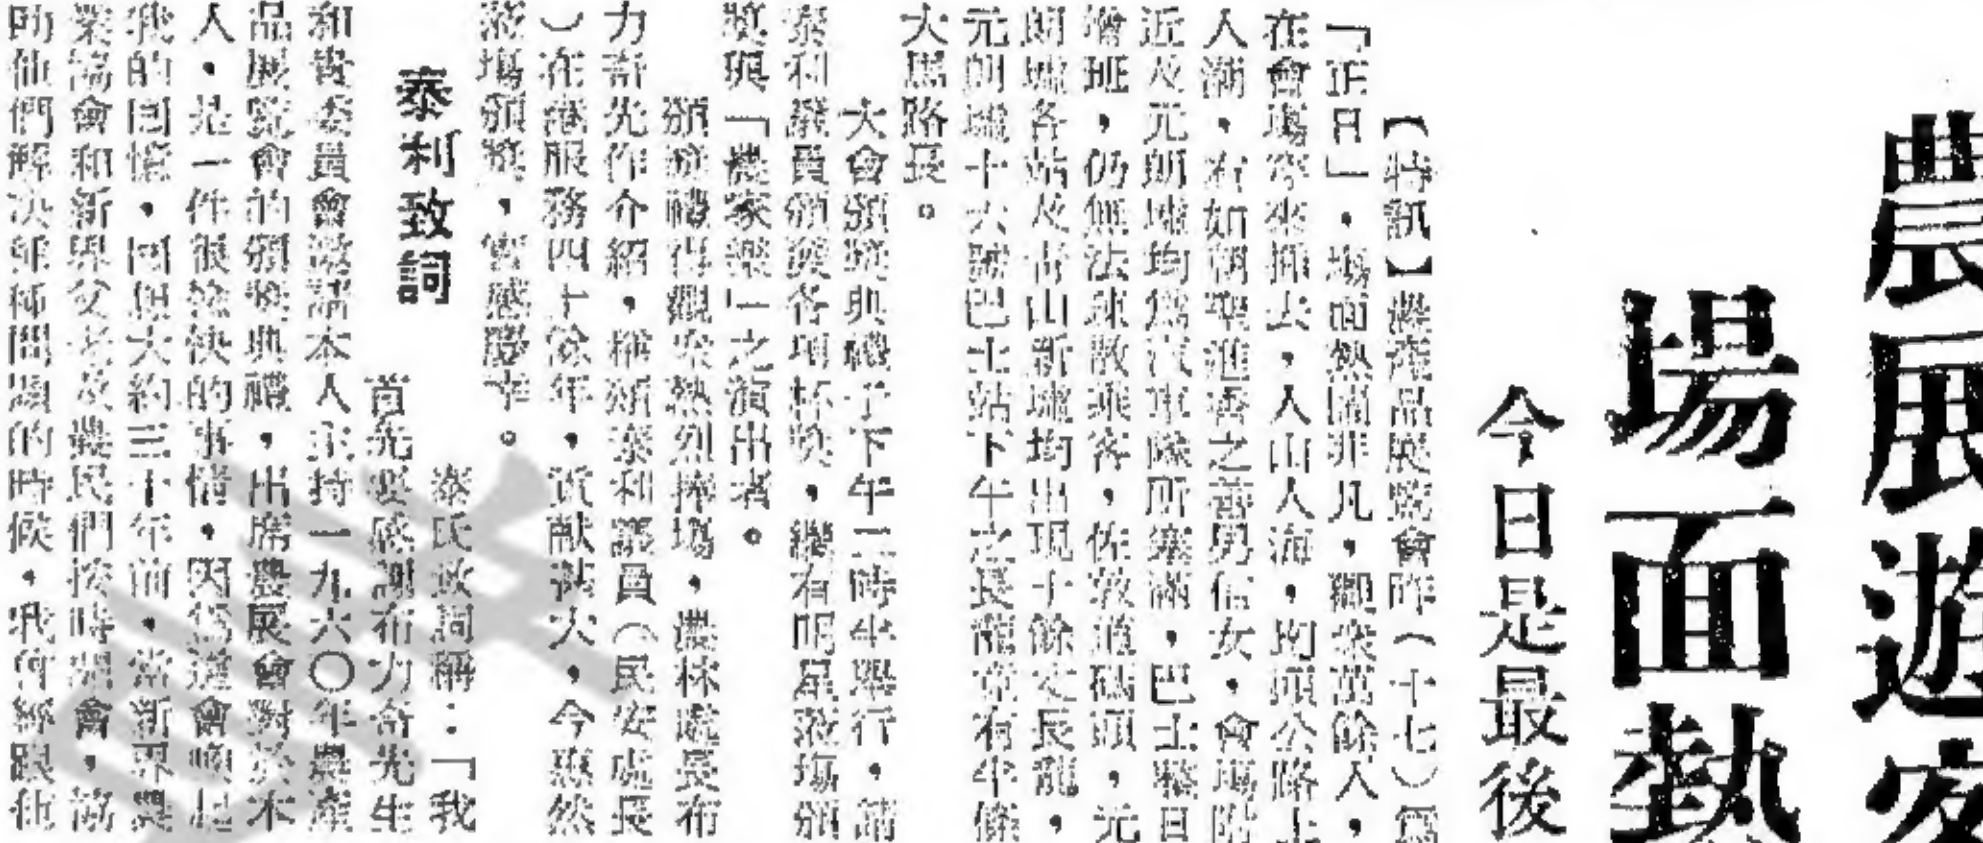 農展遊
場面熱
今日是最後
【特訊】農產品展覽會昨(十七)爲
「正日」,場面熱鬧非凡,觀衆萬餘人,
在會場穿來插去,人山人海,坳頭公路上
人潮,有如朝聖進香之善男信女,會場附
近及元朗墟均爲汽車隊所塞滿,巴士整日
增班,仍無法疏散乘客,佐敦道碼頭,元
朗墟各站及青山新墟均出現十餘丈長龍,
元朗墟十六號巴士站下午之長龍竟有半條
大馬路長。
大會頒獎典禮于下午二時半舉行,請
泰利議員頒獎各項杯獎,繼有明星蒞塲頒
獎與「農家樂」之演出者。
頒獎禮得觀衆熱烈捧塲,農林處長布
力奇先作介紹,稱頌泰利議員(民安處長
)在港服務四十餘年,貢献甚大,今惠然
蒞塲頒獎,實感勝幸。
泰利致詞
泰氏致詞稱:「我
首先要感謝布力奇先生
和貴委員會邀請本人主持一九六〇年農產
品展覽會的頒獎典禮,出席農展會對於本
人,是一件很愉快的事情,因爲這會喚起
我的回憶,回想大約三十年前,當新界農
業協會和新界父老及農民們按時開會,協
助他們解决種種問題的時候,我曾經跟他